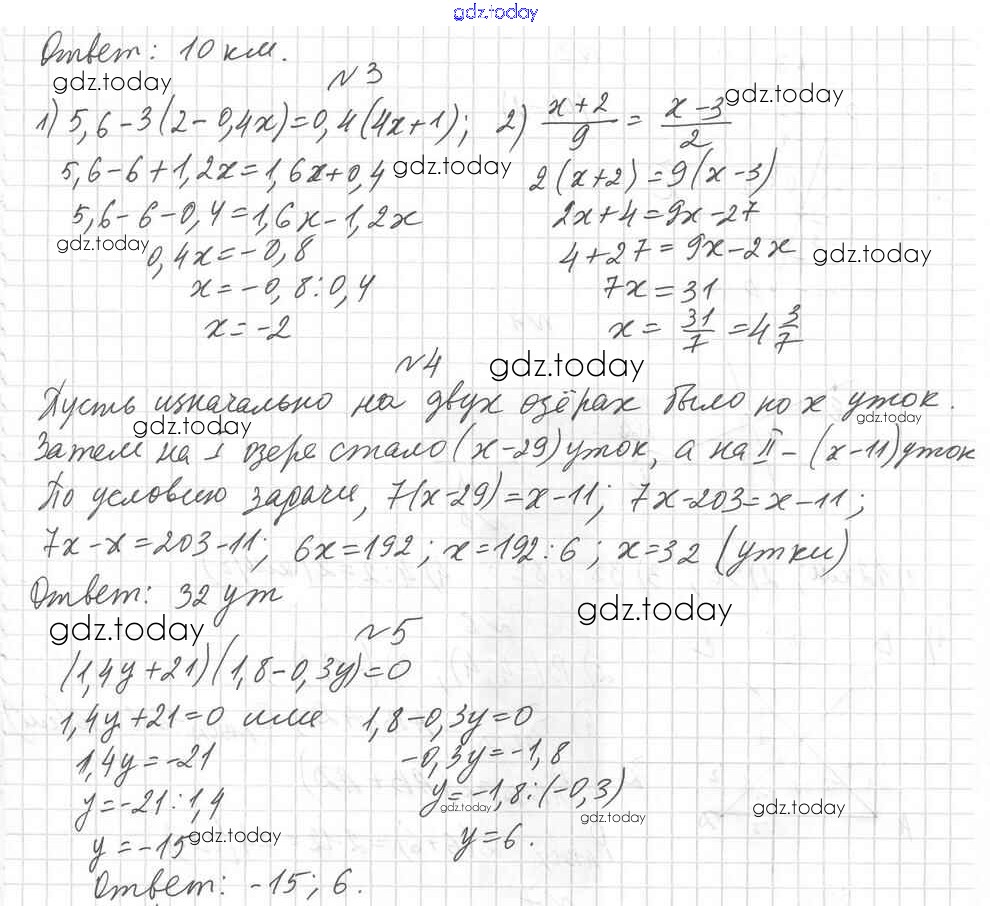 gdz.today
Ответ: 10 км.
gdz.today
№3
gdz.today
1) 5,6-3(2-0,4x)=0,4(4x+1); 2) \frac{x+2}{9} = \frac{x-3}{2}
5,6-6+1,2x=1,6x+0,4 gdz.today 2(x+2)=9(x-3)
5,6-6-0,4=1,6x-1,2x 2x+4=9x-27
gdz.today 0,4x=-0,8 4+27=9x-2x gdz.today
x=-0,8:0,4 7x=31
x=-2 x=\frac{31}{7}=4\frac{3}{7}
№4 gdz.today
Пусть изначально на двух озёрах было по x уток.
gdz.today gdz.today
Затем на I озере стало (x-29) уток, а на II - (x-11) уток
По условию задачи, 7(x-29)=x-11; 7x-203=x-11;
7x-x=203-11; 6x=192; x=192:6; x=32 (утки)
Ответ: 32 ут gdz.today
gdz.today №5
(1,4y+21)(1,8-0,3y)=0
1,4y+21=0 или 1,8-0,3y=0
1,4y=-21 -0,3y=-1,8
y=-21:1,4 y=-1,8:(-0,3)
gdz.today gdz.today gdz.today
y=-15 gdz.today y=6.
Ответ: -15; 6.